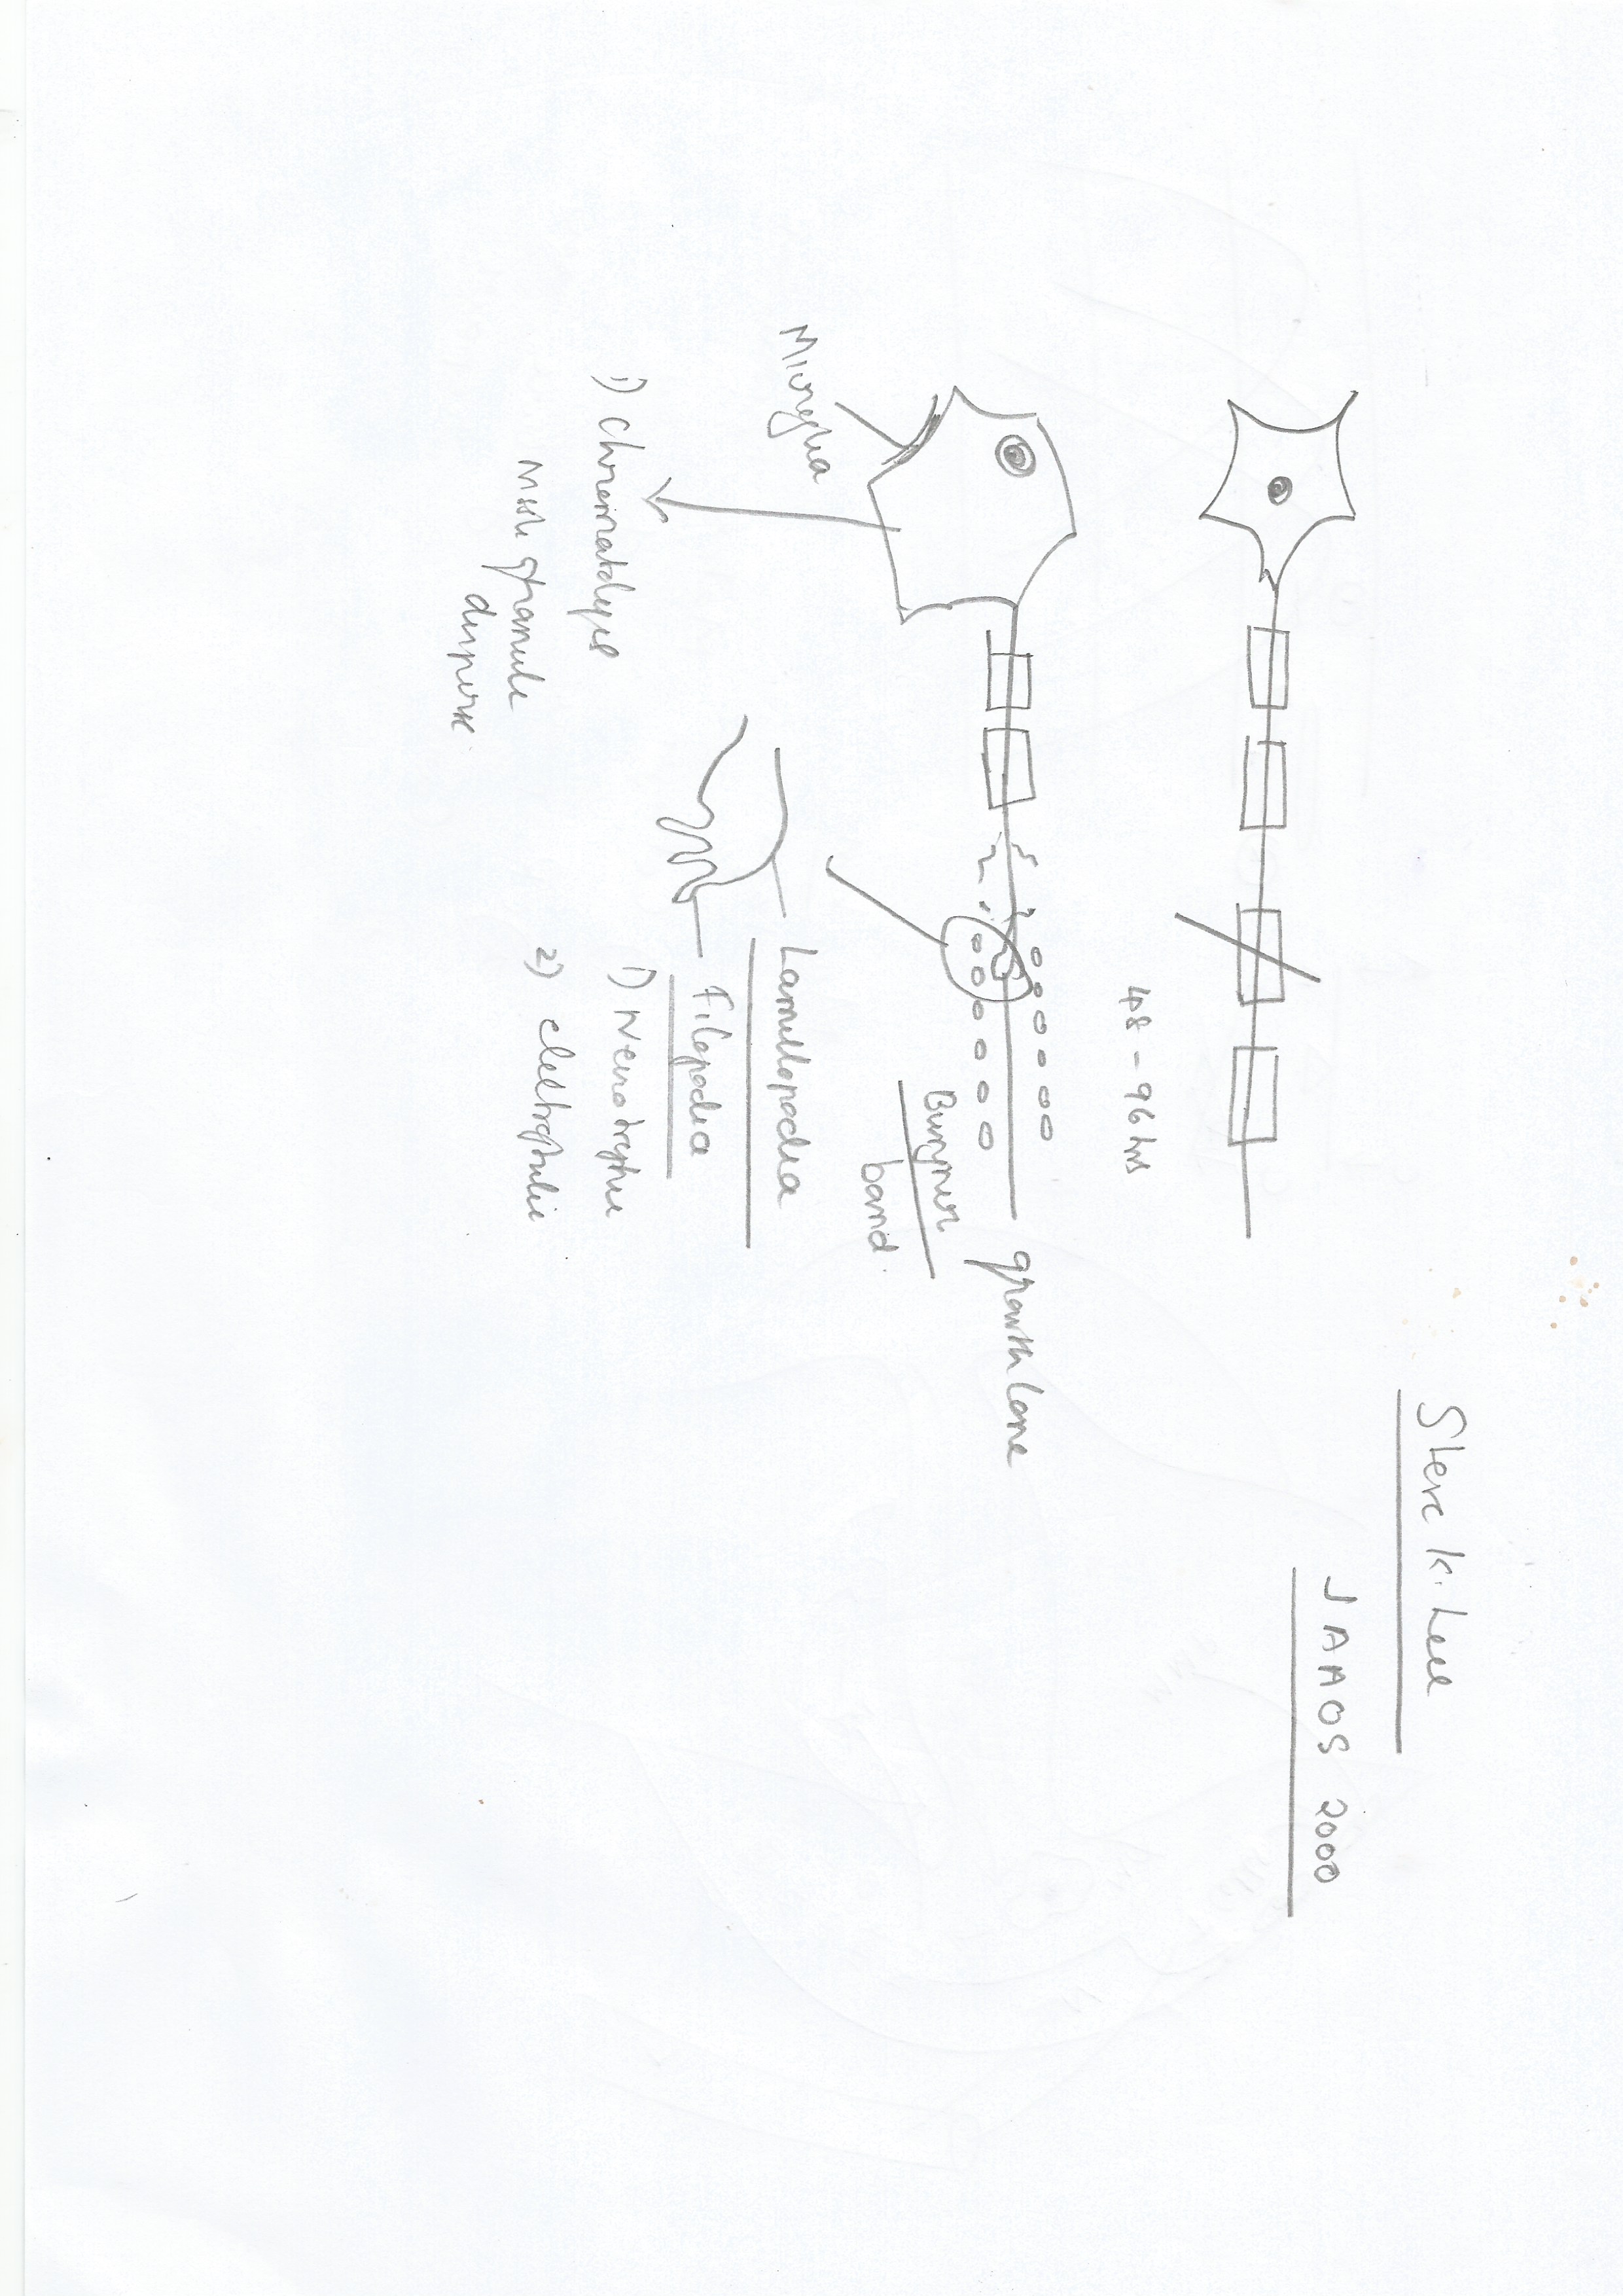 Steve K. Lee
JAAOS 2000
48 - 96 hrs
growth cone
Bungner
band
Microglia
Lamellopodia
Filopodia
1) Neurotrophic
2) electrophilic
1) Chromatolysis
Nissle granule
disperse